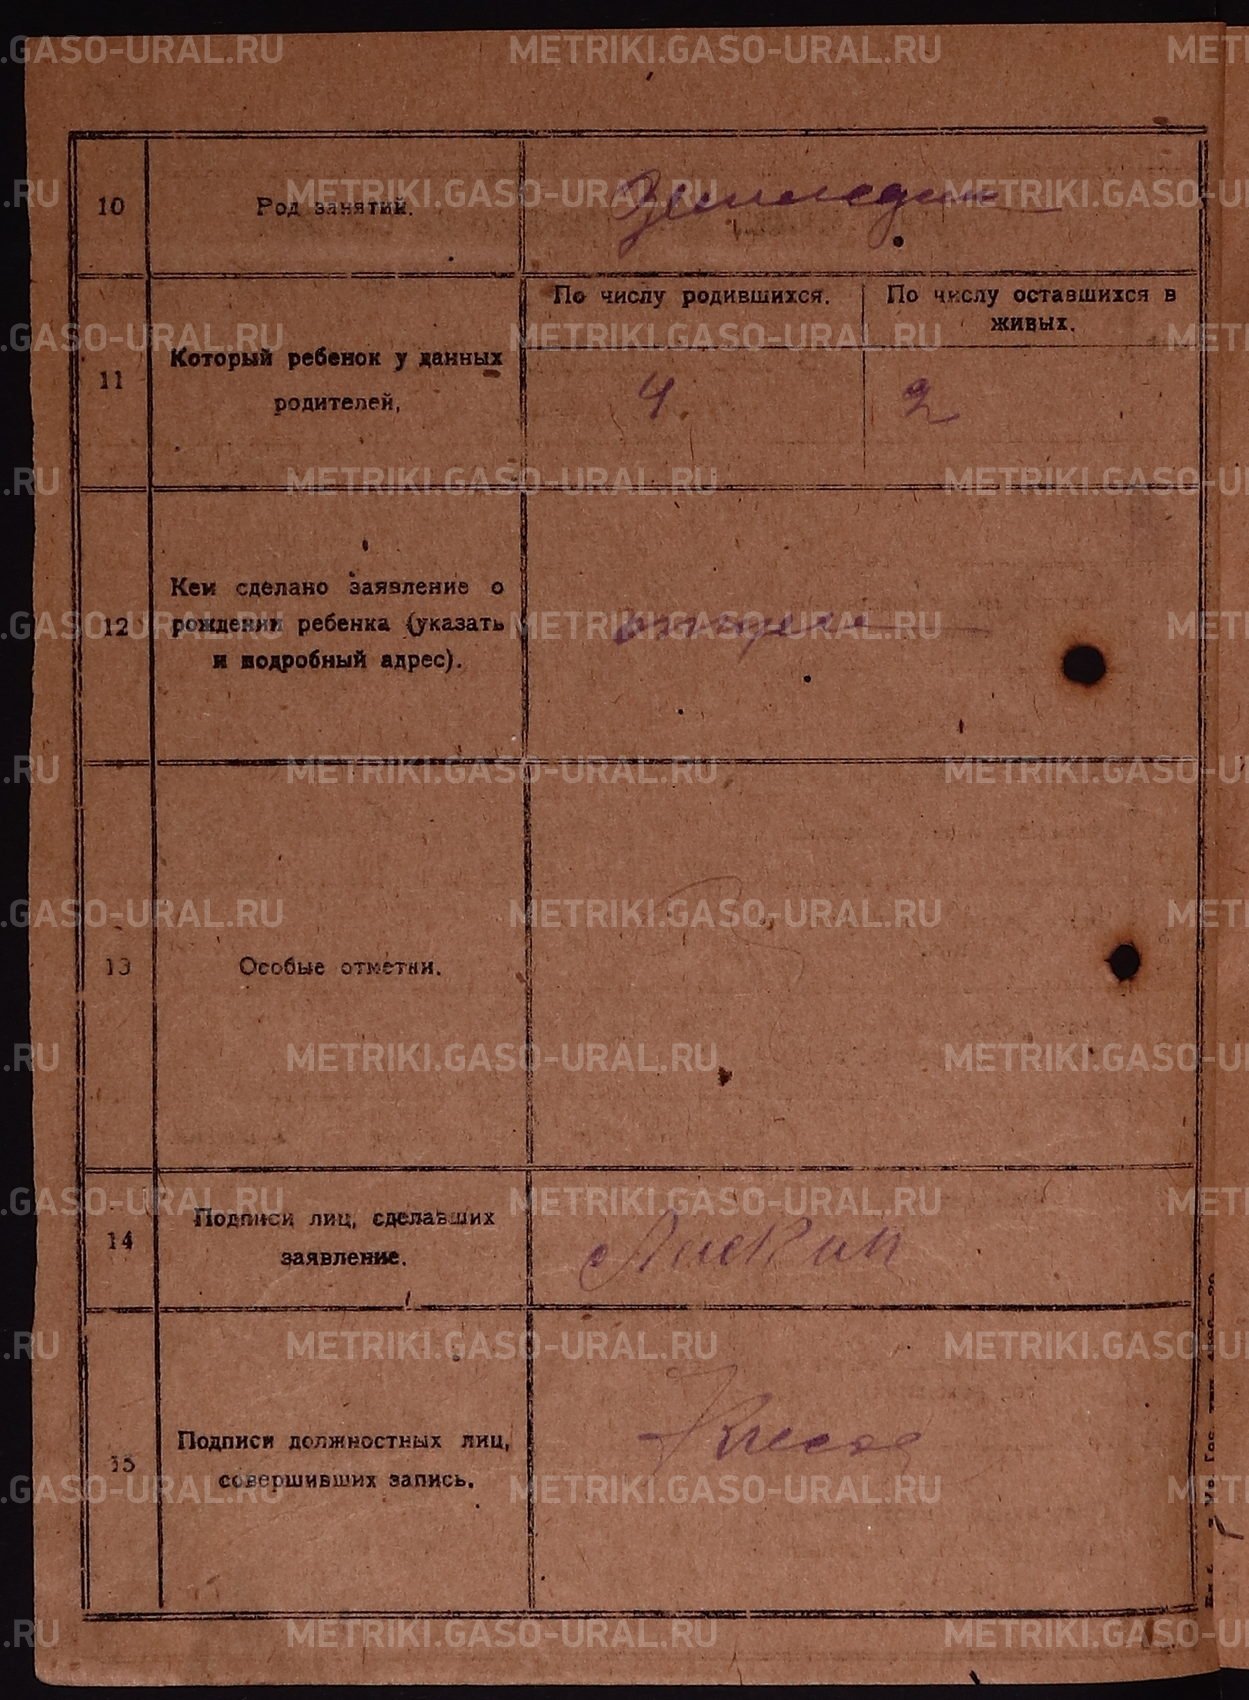 10
Род занятий.
Земледел
11
Который ребенок у данных
родителей,
По числу родившихся.
По числу оставшихся в
живых.
4
2
12
Кем сделано заявление о
рождении ребенка (указать
и подробный адрес).
отцем
13
Особые отметки.
14
Подписи лиц, сделавших
заявление.
15
Подписи должностных лиц,
совершивших запись.
METRIKI.GASO-URAL.RU